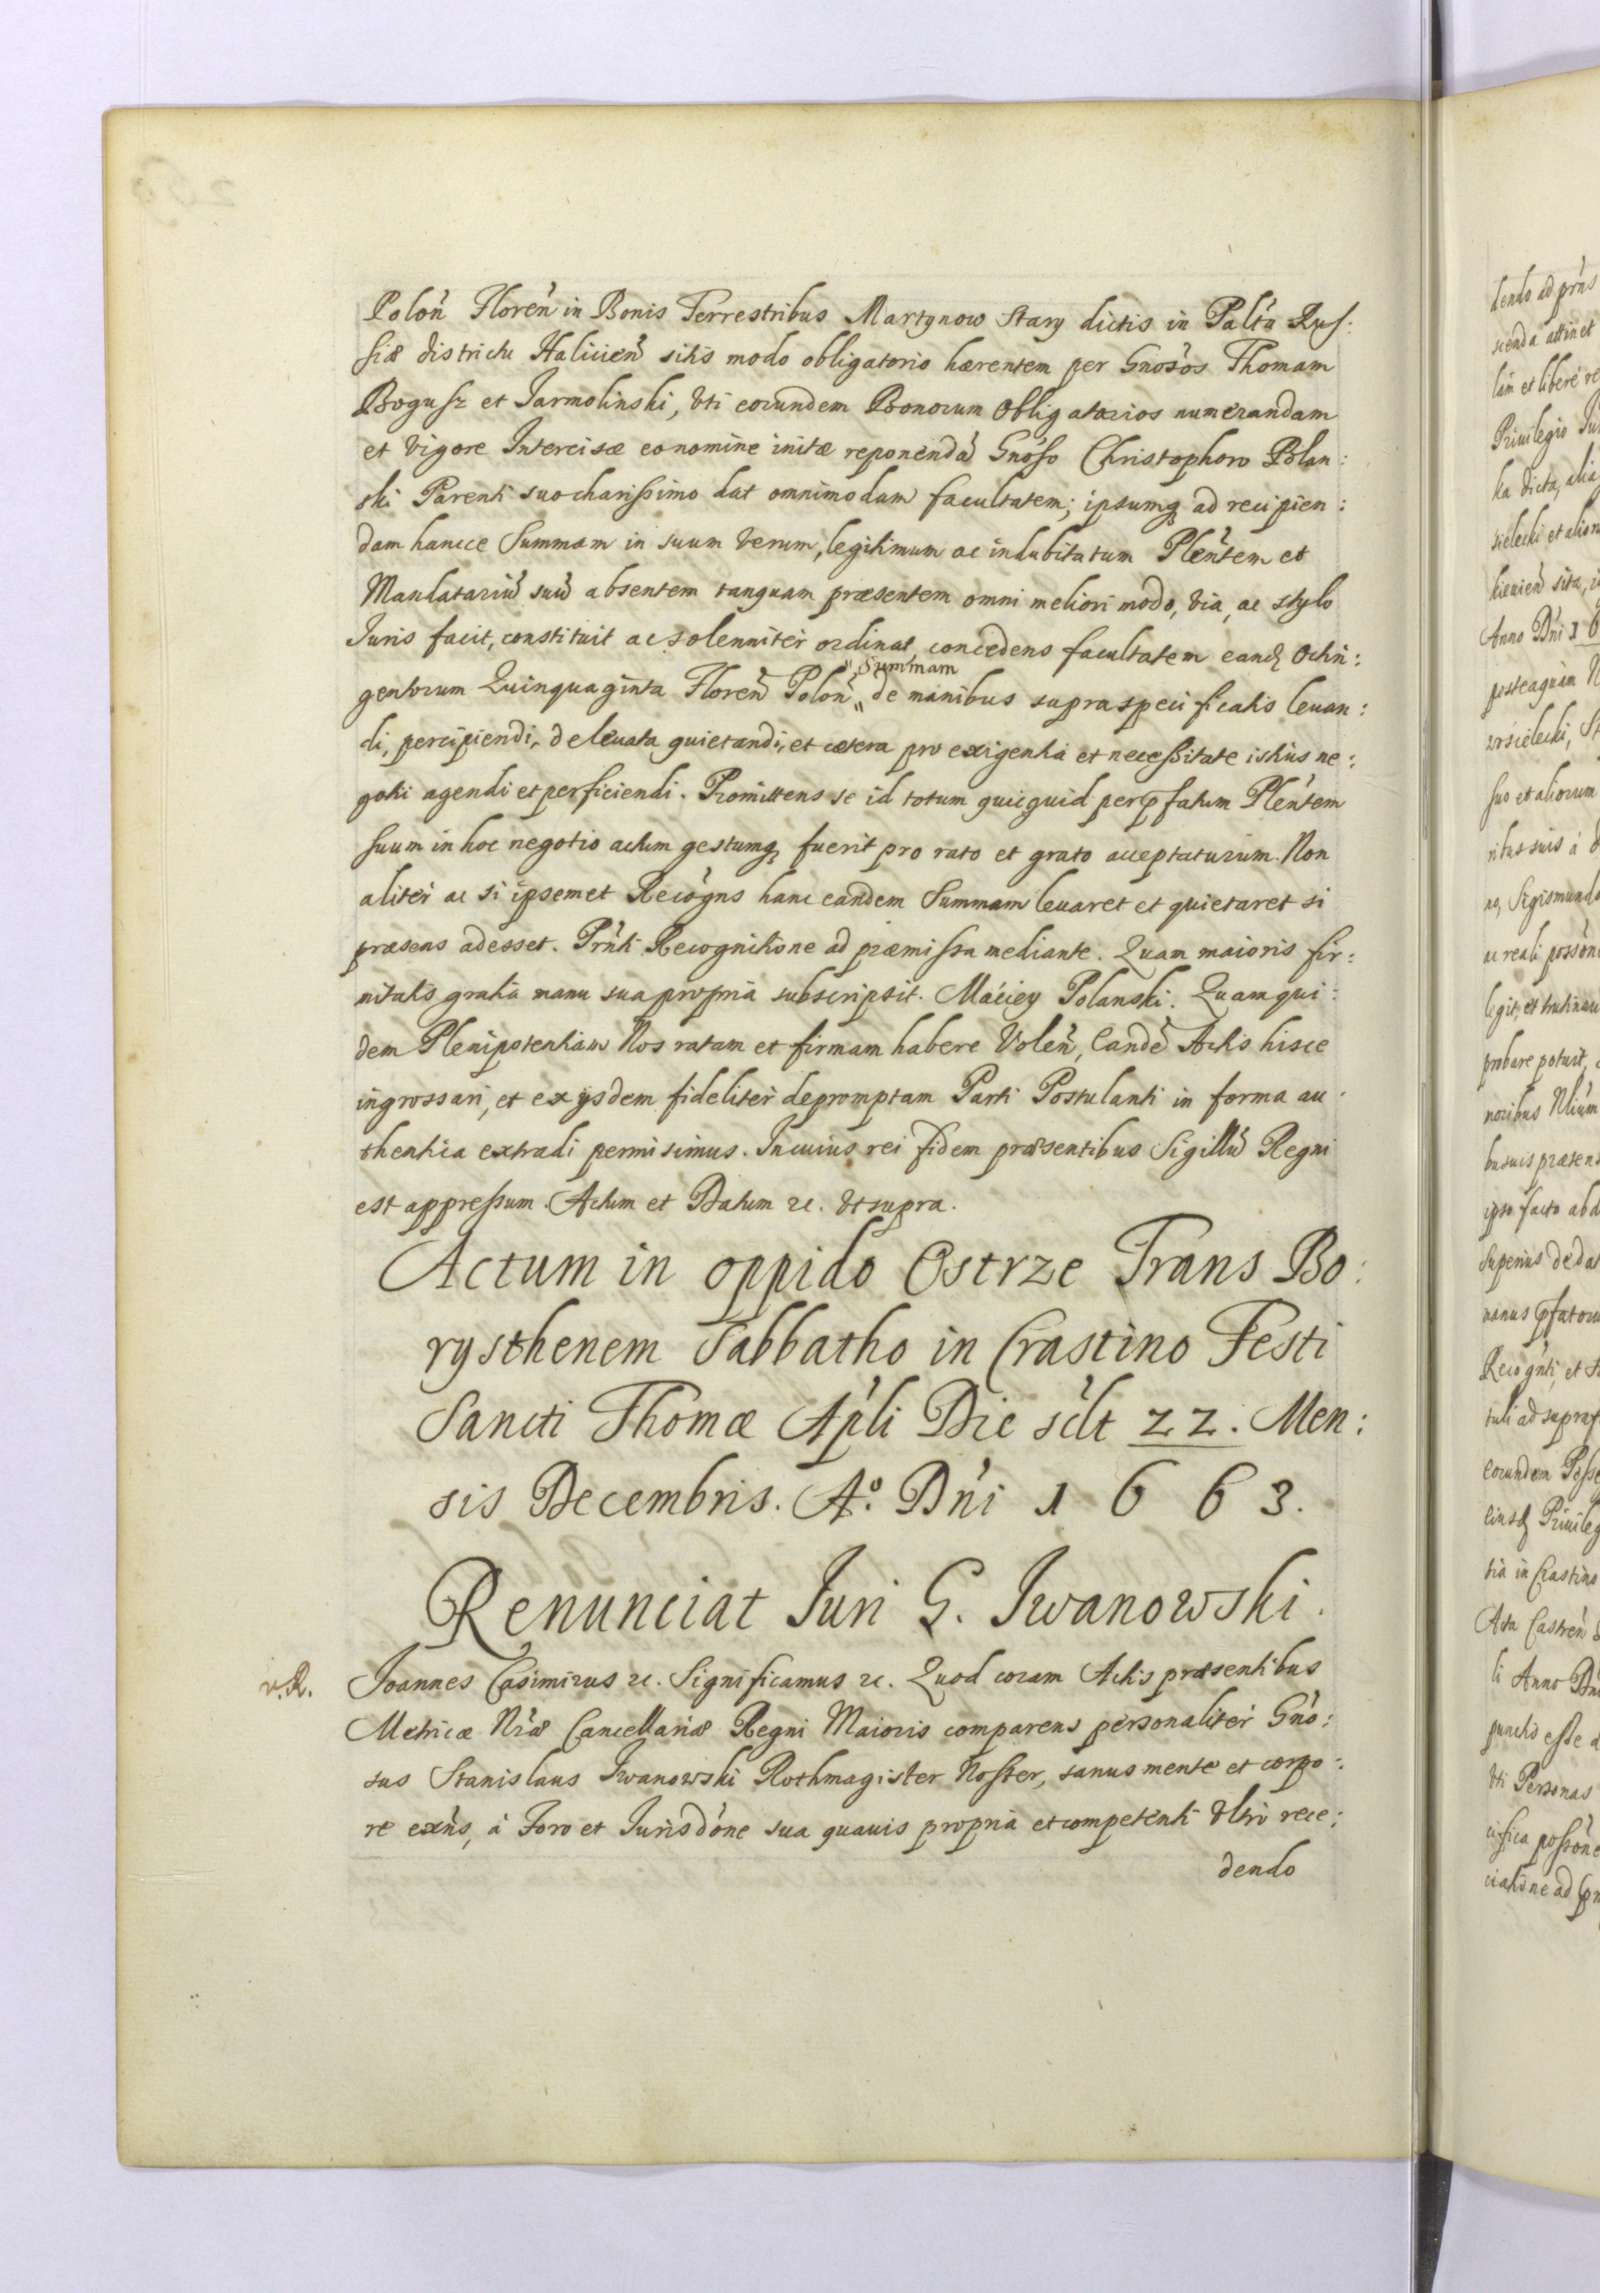 Polon̄ Floren̄ in Bonis Terrestribus Martynow Stary dictis in Palt̄u Rus:
siæ districtu Halicien̄ sitis modo obligatorio hærentem per Gnosos Thomam
Bogusz et Jarmolinski, Vti eorundem Bonorum Obligatorios numerandam
et Vigore Intercisæ eo nomine initæ reponendā Gnoso Christophoro Polan:
ski Parenti suo charissimo dat omnimodam facultatem; ipsumq ad recipien:
dam hancce Summam in suum Verum, legitimum ac indubitatum Plen̄tem et
Mandatariū suū absentem tanquam præsentem omni meliori modo, via, ac stylo
Iuris facit, constituit ac solenniter ordinat, concedens facultatem eand Octin:
gentorum Quinquaginta Floren̄ Polon̄ " Summam " de manibus supraspecificatis levan:
di, percipiendi, de levata quietandi, et cætera pro exigentia et necessitate istius ne:
gotii agendi et perficiendi. Promittens se id totum quicquid per pfatum Plen̄tem
suum in hoc negotio actum gestumq fuerit pro rato et grato acceptaturum. Non
aliter ac si ipsemet Recogns hanc eandem Summam levaret et quietaret si
præsens adesset. Prn̄ti Recognitione ad præmissa mediante. Quam maioris fir:
mitatis gratia manu sua propria subscripsit. Maciey Polanski. Quam qui:
dem Plenipotentiam Nos ratam et firmam habere Volen̄, Eandē Actis hisce
ingrossari, et ex ijsdem fideliter depromptam Parti Postulanti in forma au:
thentica extradi permisimus. In cuius rei fidem præsentibus Sigillū Regni
est appressum. Actum et Datum &c. Vt supra.
Actum in oppido Ostrze Trans Bo:
rysthenem Sabbatho in Crastino Festi
Sancti Thomæ Apli Die sclt 22. Men:
sis Decembris. Aº. Dni 1663.
Renunciat Juri G. Jwanowski.
v.R. Joannes Casimirus &c. Significamus &c. Quod coram Actis præsentibus
Metricæ Nræ Cancellariæ Regni Maioris comparens personaliter Gno:
sus Stanislaus Jwanowski Rothmagister Noster, sanus mente et corpo:
re exns, à Foro et Jurisdone sua quavis propria et competenti Vltro rece:
dendo